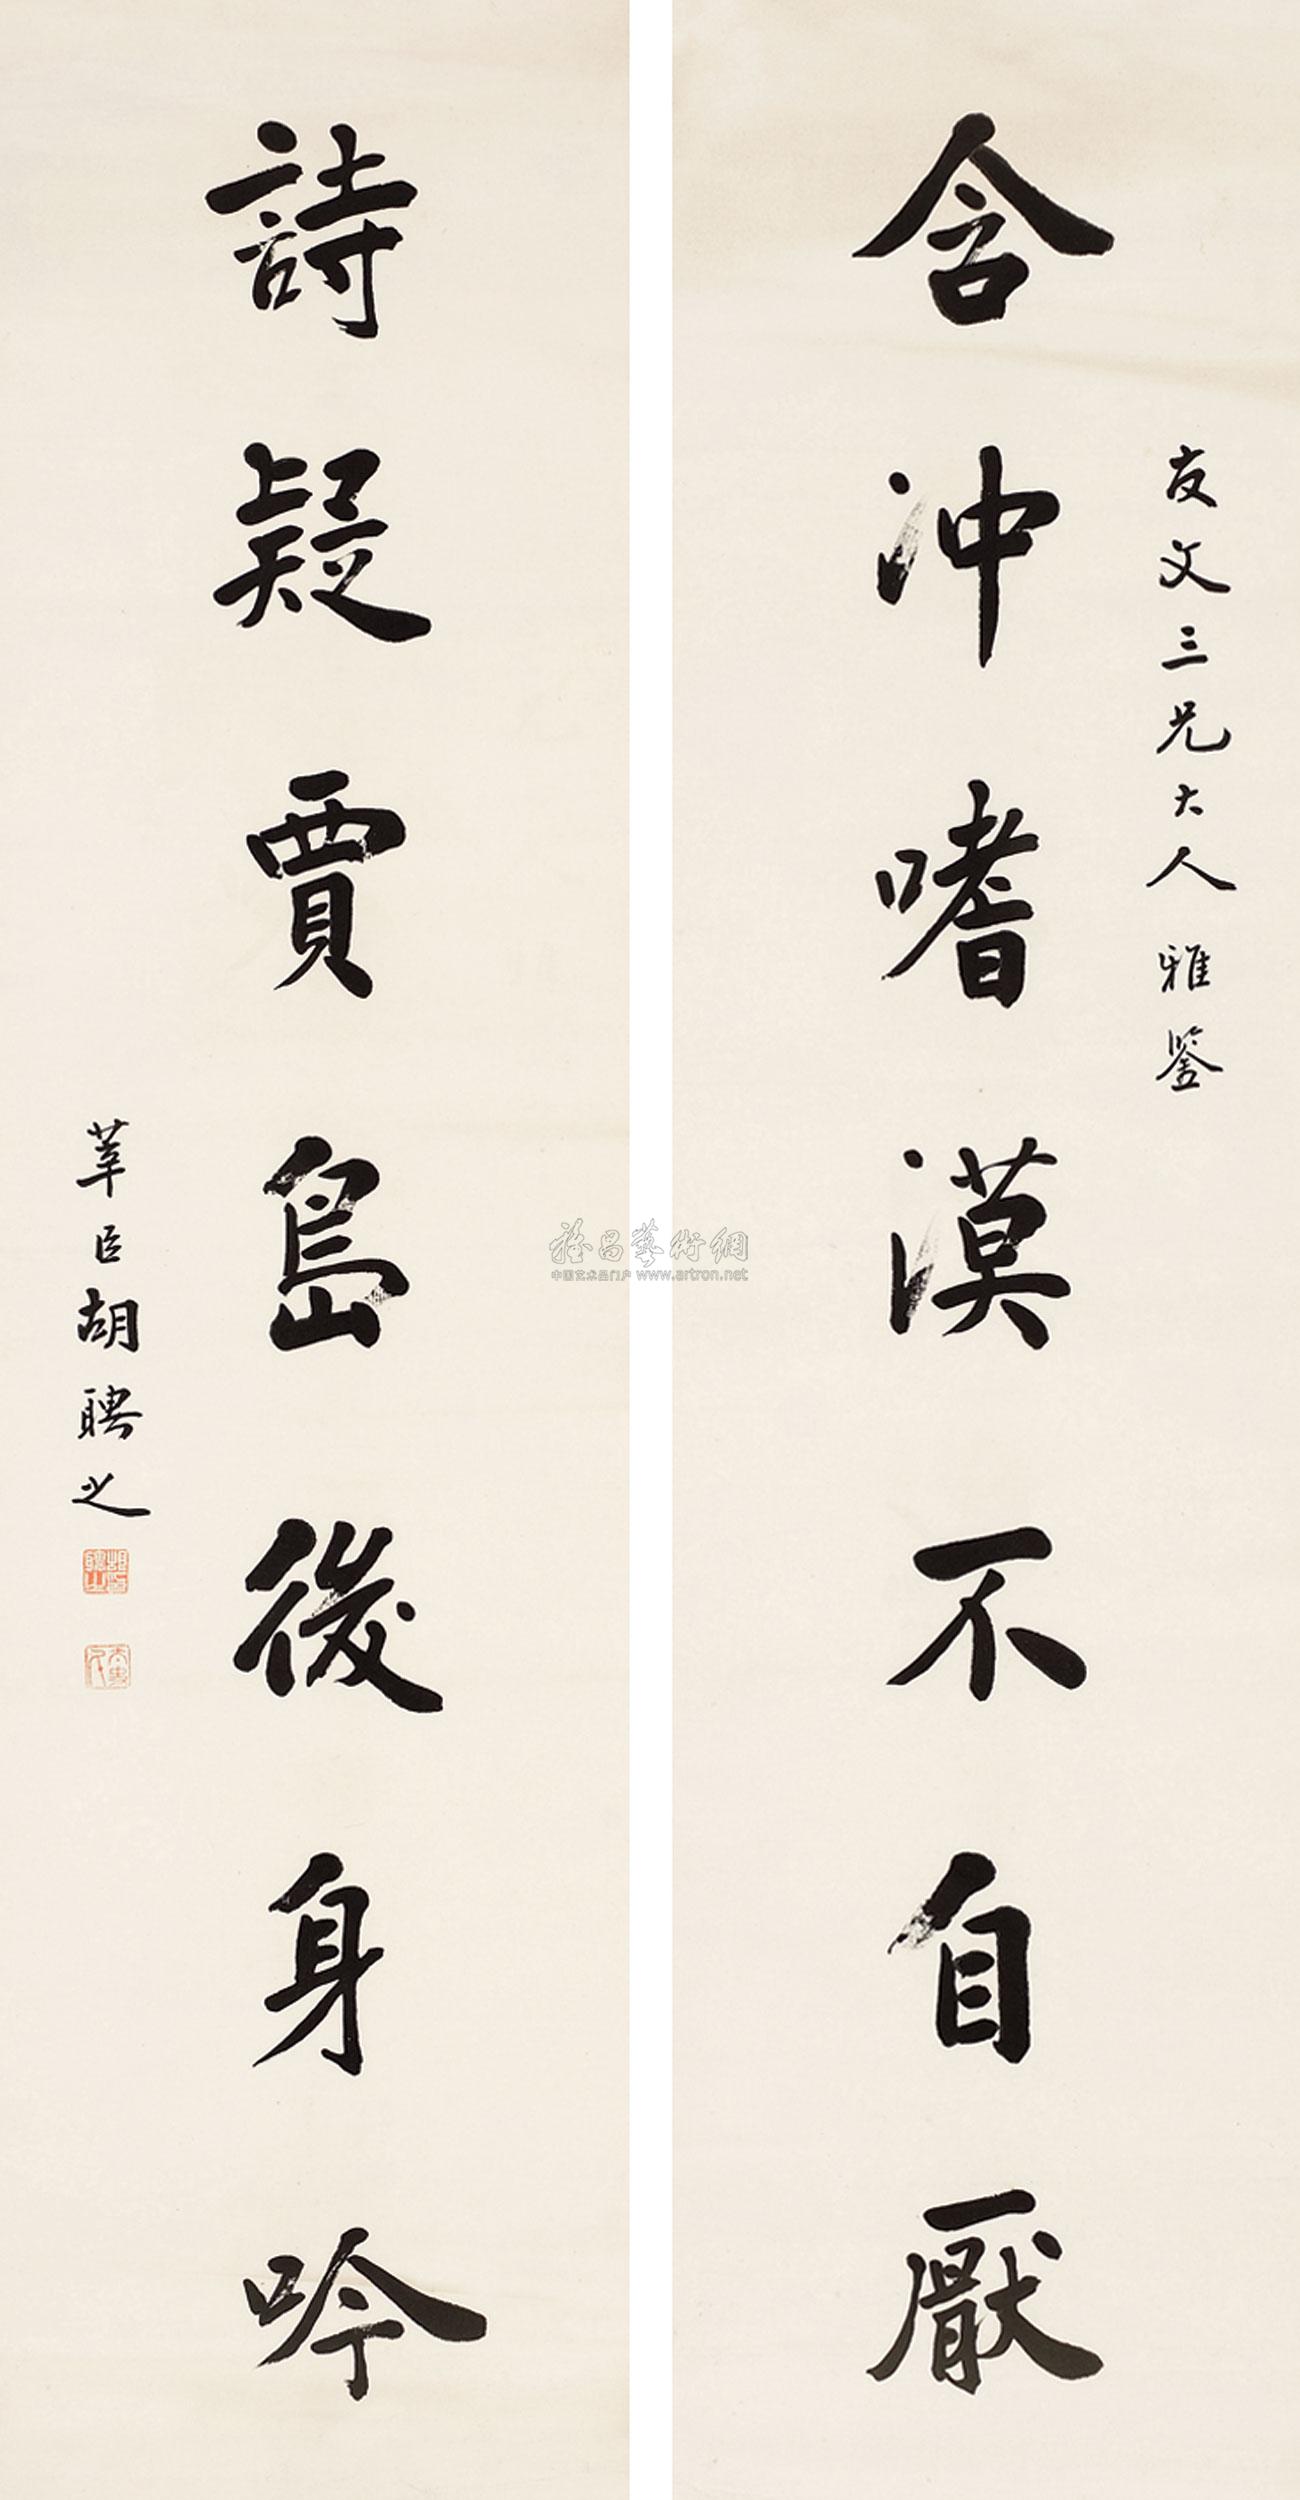 友文三兄大人雅鑒
含沖嗜漠不自厭
詩疑賈島後身吟
莘臣胡聘之
雅昌藝術網
中国艺术品门户 www.artron.net